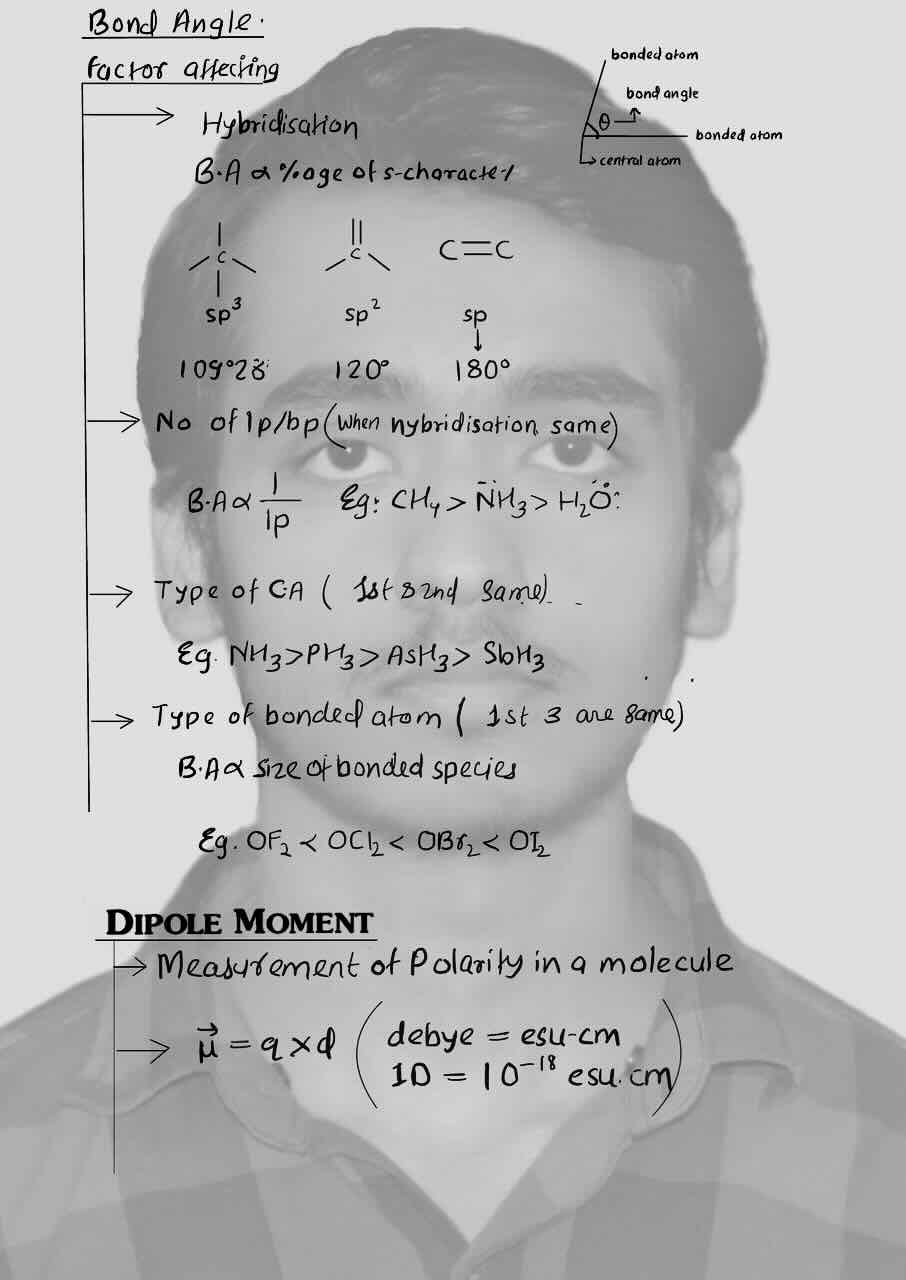 Bond Angle.
factor affecting
bonded atom
bond angle
θ
bonded atom
central atom
Hybridisation
B.A ∝ %age of s-character
C C C=C
sp³ sp² sp
109°28' 120° 180°
No of lp/bp (When hybridisation same)
B.A ∝ 1/lp Eg: CH₄ > NH₃ > H₂O:
Type of CA ( 1st & 2nd same)
Eg. NH₃ > PH₃ > AsH₃ > SbH₃
Type of bonded atom ( 1st 3 are same)
B.A ∝ size of bonded species
Eg. OF₂ < OCl₂ < OBr₂ < OI₂
DIPOLE MOMENT
Measurement of Polarity in a molecule
μ⃗ = q × d ( debye = esu-cm
1D = 10⁻¹⁸ esu.cm )